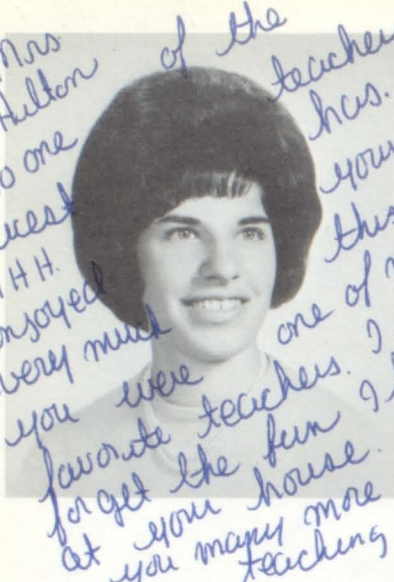 Mrs
Hulton
o one of the
cest teacher
HH. has.
enjoyed your
very much this
you were one of m
favorite teachers. I
forget the fun I h
at your house.
you many more
teaching